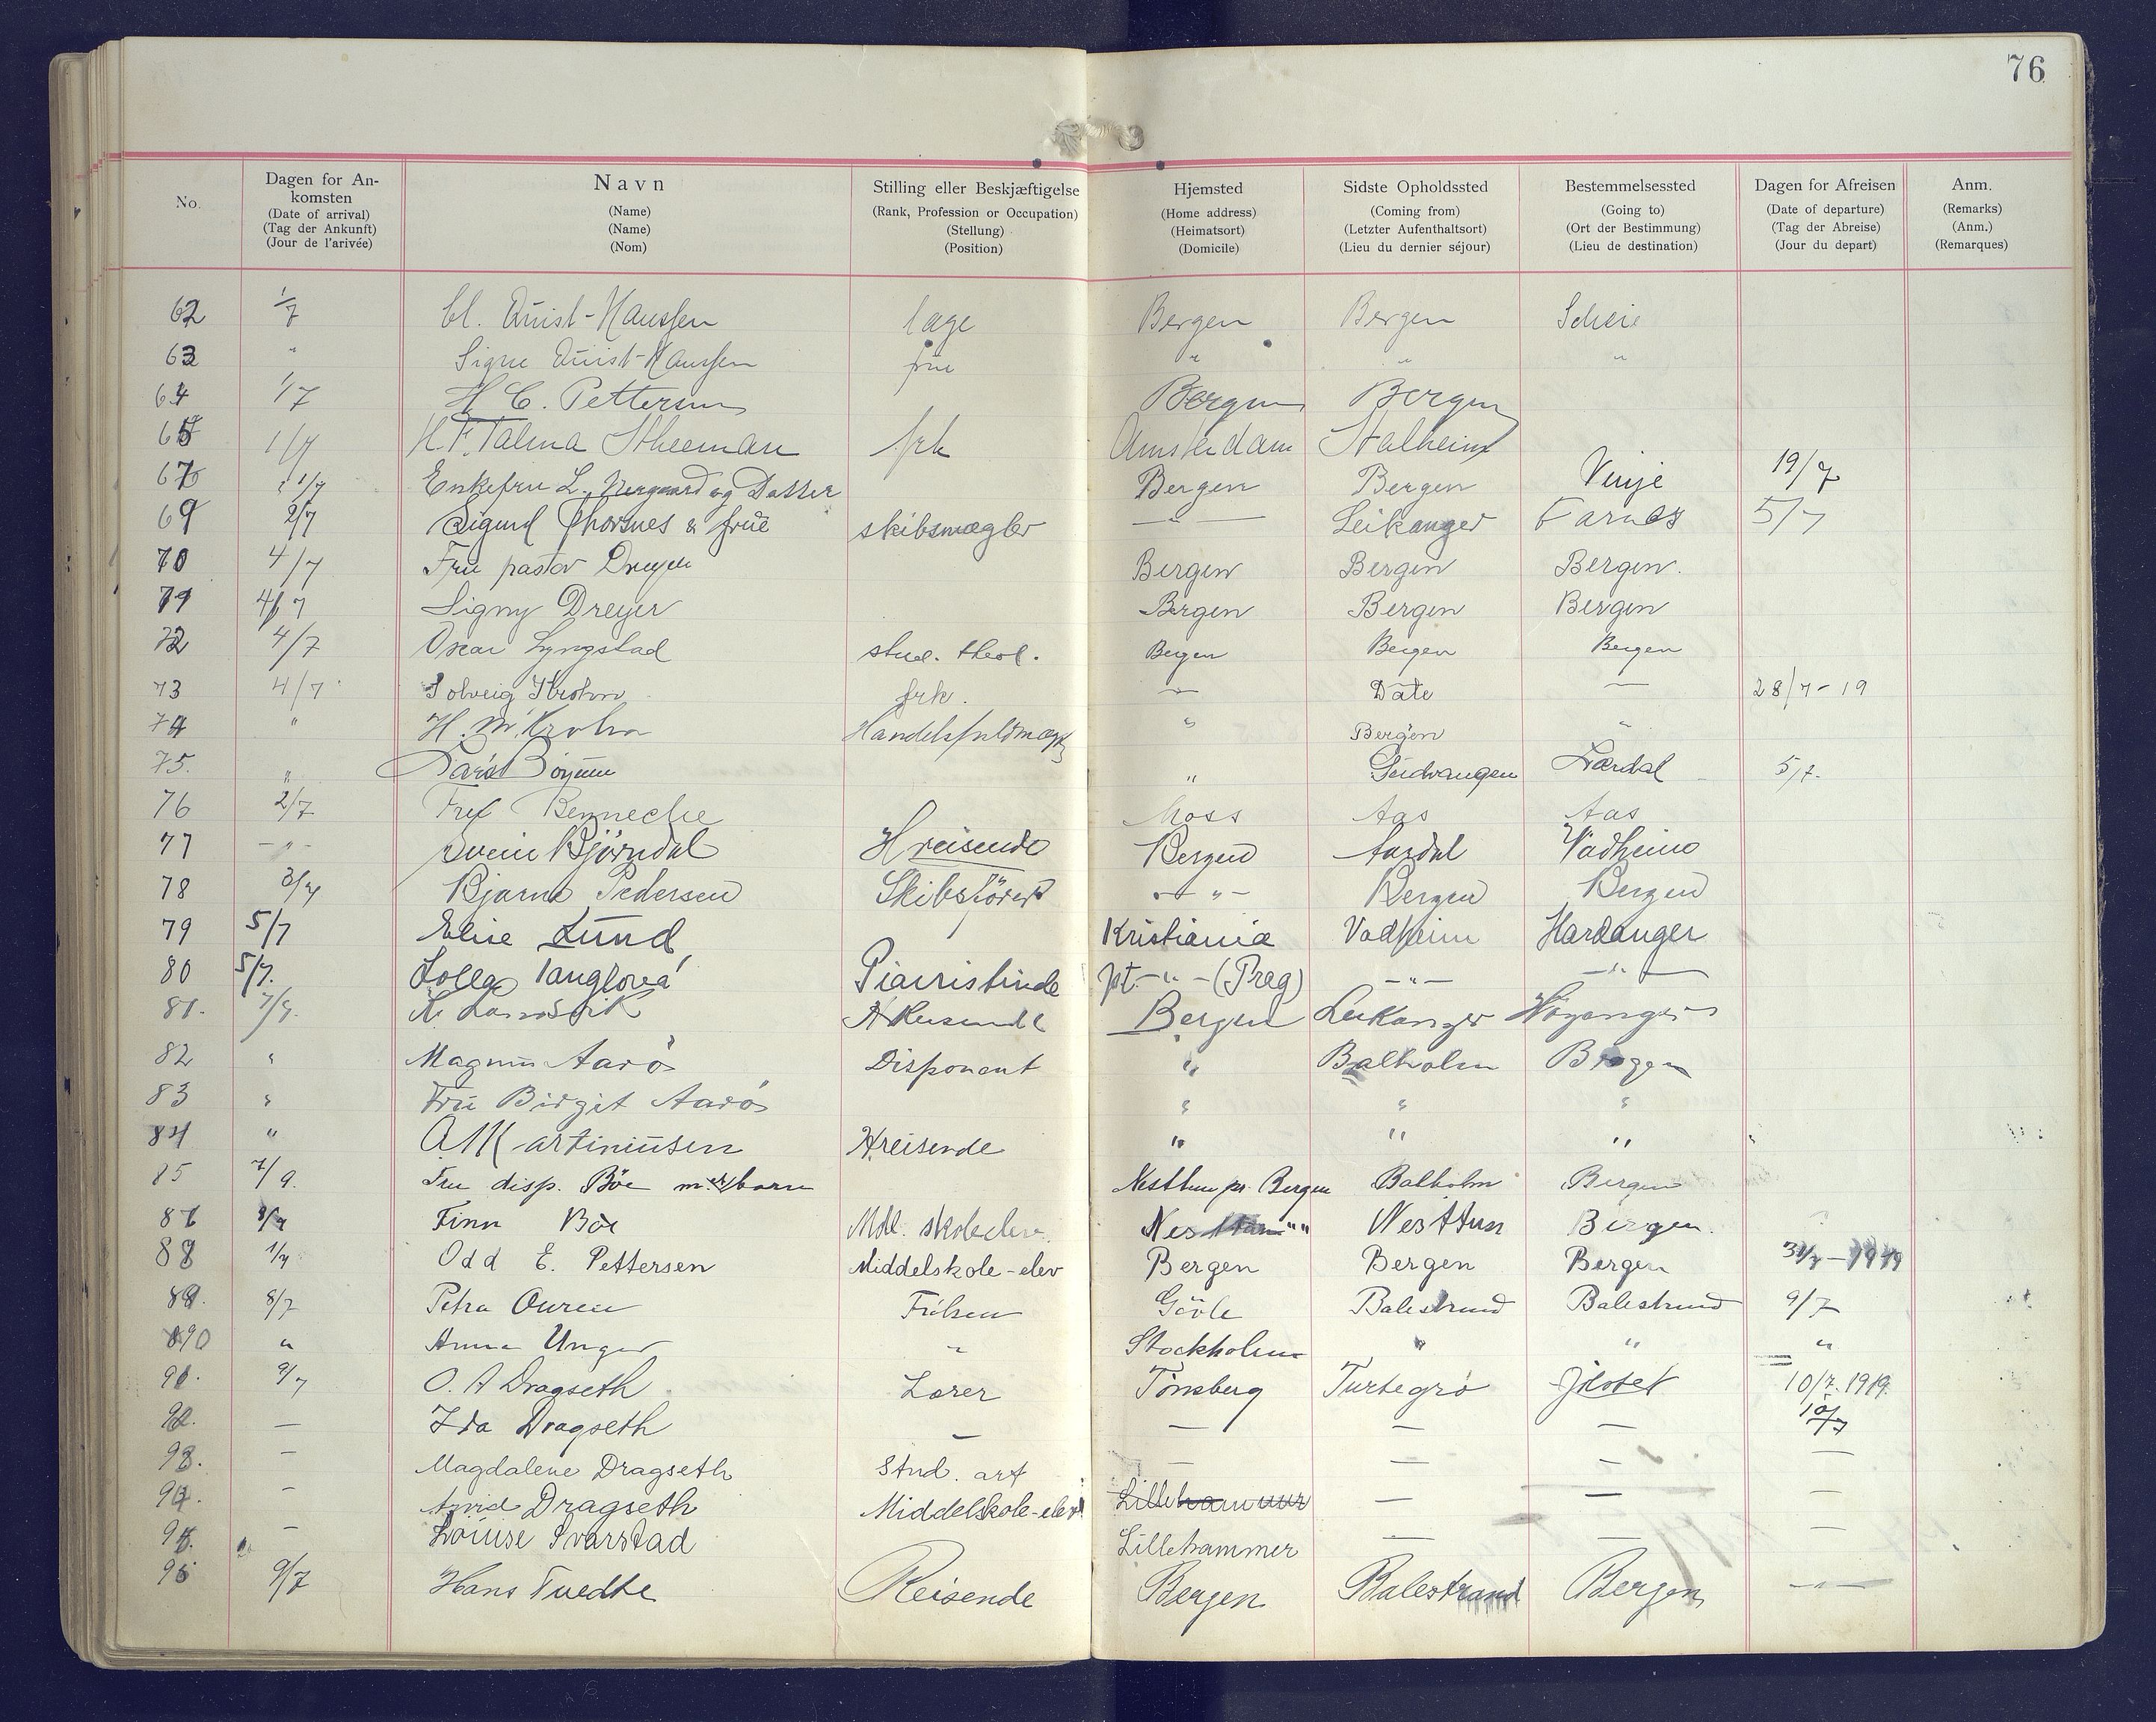 76
No. Dagen for An-komsten (Date of arrival) (Tag der Ankunft) (Jour de l'arivée) Navn (Name) (Name) (Nom) Stilling eller Beskjæftigelse (Rank, Profession or Occupation) (Stellung) (Position) Hjemsted (Home address) (Heimatsort) (Domicile) Sidste Opholdssted (Coming from) (Letzter Aufenthaltsort) (Lieu du dernier séjour) Bestemmelsessted (Going to) (Ort der Bestimmung) (Lieu de destination) Dagen for Afreisen (Date of departure) (Tag der Abreise) (Jour du depart) Anm. (Remarks) (Anm.) (Remarques)
62 1/7 Quist-Hanssen læge Bergen Bergen
63 " Signe Quist-Hanssen frue " " "
64 1/7 H C. Pettersen Bergen Bergen
65 1/7 H. F. Talma Stheeman frk Amsterdam Stalheim
67 1/7 Enkefru L. Nergaard og Datter Bergen Bergen Vinje 19/7
69 2/7 Sigurd Thorsnes & frue skibsmægler — " — Leikanger Farnes 5/7
70 4/7 Fru pastor Dreyer Bergen Bergen Bergen.
71 4/7 Signy Dreyer Bergen Bergen Bergen
72 4/7 Oscar Lyngstad stud. theol. Bergen Bergen Bergen
73 4/7 Solveig Krohn frk. — Date — 28/7-19
74 " H. M. Krohn Handelsfuldmægt " Bergen "
75. " Lars Böyum " Gudvangen Lærdal 5/7.
76 2/7 Benneche Moss Aas Aas
77 — " — Svein Björndal H reisende Bergen Aardal Vadheim
78 3/7 Bjarne Pedersen Skibsförer — " — Bergen Bergen
79 5/7 Elise Lund Kristiania Vadheim Hardanger
80 5/7. Pianistinde pt — " — (Prag) — " — — " —
81. 7/7. H Reisende Bergen Leikanger Höyanger
82 " Magnus Aarö Disponent " Balholm Bergen
83 " Fru Birgit Aarö " " "
84 " A Martiniusen H reisende " " "
85 Fru disp. Böe m. barn Nesttun pr. Bergen Balholm Bergen
Finn Böe Mdl. skoleelev. Nesttun Bergen.
88 1/7 Odd E. Pettersen Middelskole-elev Bergen Bergen Bergen 31/7 - 1919
89. 8/7 Petra Ouren Gävle Balestrand Balestrand 9/7
90 " Anna Unger " Stockholm " " "
91. 9/7 O. A Dragseth Lærer Tönsberg Turtegrö 10/7. 1919.
92. — Ida Dragseth — — — — 10/7
93. — Magdalene Dragseth Stud. art — — — —
94. — Arvid Dragseth Middelskole-elev Lillehammer — — —
95. — Louise Svarstad Lillehammer — — —
96 9/7 Hans Tvedte Reisende Bergen Balestrand Bergen — " —